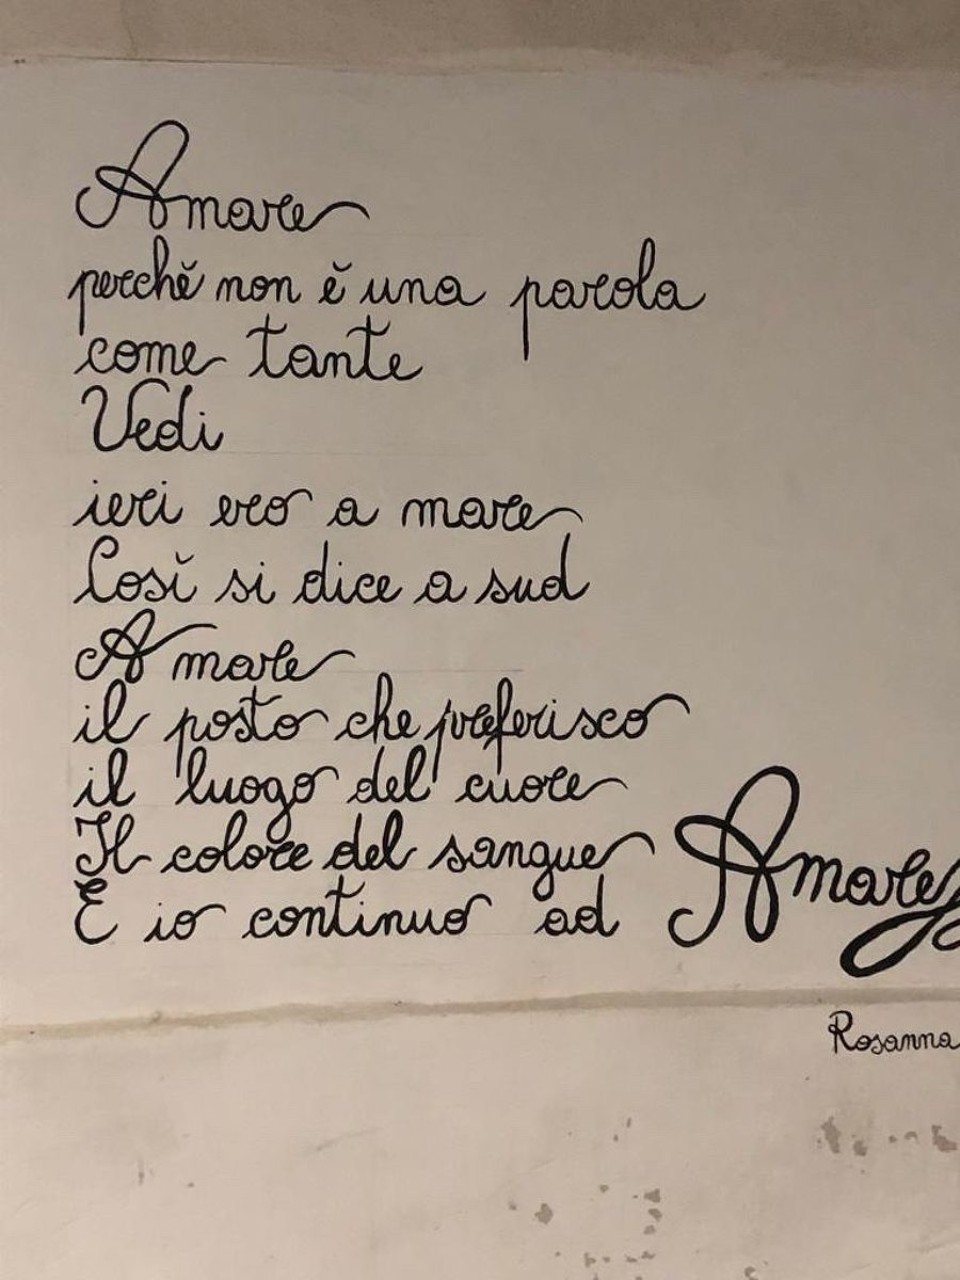 Amare
perchĕ non ĕ una parola
come tante
Vedi
ieri ero a mare
Cosĭ si dice a sud
A mare
il posto che preferisco
il luogo del cuore
Il colore del sangue
E io continuo ad Amare
Rosanna